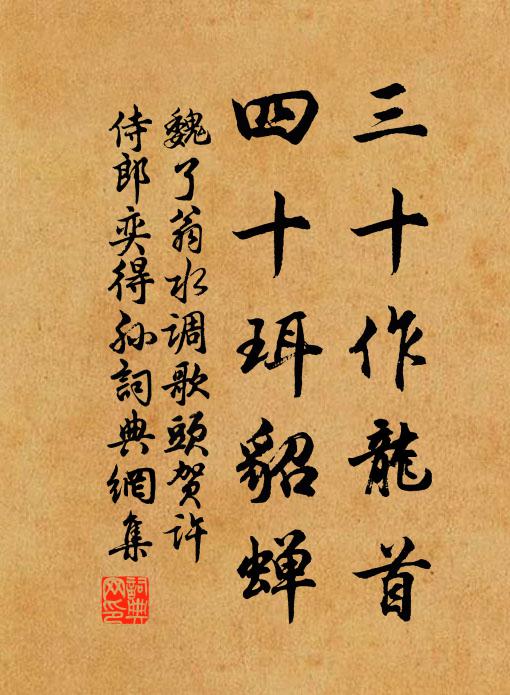 三十作龍首
四十珥貂蝉
魏了翁水调歌頭贺许
侍郎奕得孙詞典網集
詞典网印